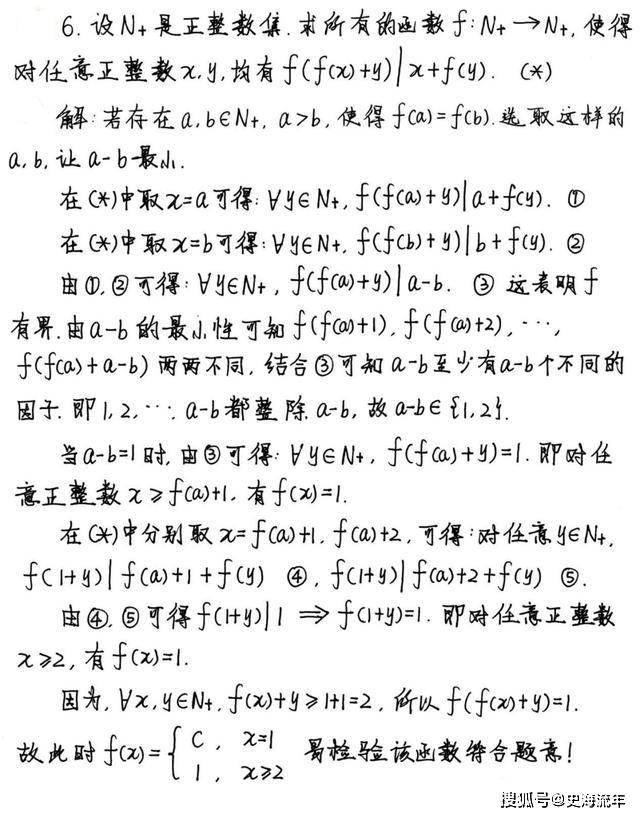 6. 设N₊是正整数集.求所有的函数f:N₊→N₊,使得
对任意正整数x,y,均有f(f(x)+y)|x+f(y). (*)
解:若存在a,b∈N₊,a>b,使得f(a)=f(b).选取这样的
a,b,让a-b最小.
在(*)中取x=a可得:∀y∈N₊,f(f(a)+y)|a+f(y). ①
在(*)中取x=b可得:∀y∈N₊,f(f(b)+y)|b+f(y). ②
由①,②可得:∀y∈N₊,f(f(a)+y)|a-b. ③ 这表明f
有界.由a-b的最小性可知f(f(a)+1),f(f(a)+2),⋯,
f(f(a)+a-b)两两不同,结合③可知a-b至少有a-b个不同的
因子.即1,2,⋯,a-b都整除a-b,故a-b∈{1,2}.
当a-b=1时,由③可得:∀y∈N₊,f(f(a)+y)=1.即对任
意正整数x≥f(a)+1,有f(x)=1.
在(*)中分别取x=f(a)+1,f(a)+2,可得:对任意y∈N₊,
f(1+y)|f(a)+1+f(y) ④,f(1+y)|f(a)+2+f(y) ⑤.
由④,⑤可得f(1+y)|1⇒f(1+y)=1.即对任意正整数
x≥2,有f(x)=1.
因为,∀x,y∈N₊,f(x)+y≥1+1=2,所以f(f(x)+y)=1.
故此时f(x)={ C, x=1
1, x≥2 易检验该函数符合题意!
搜狐号@史海流年